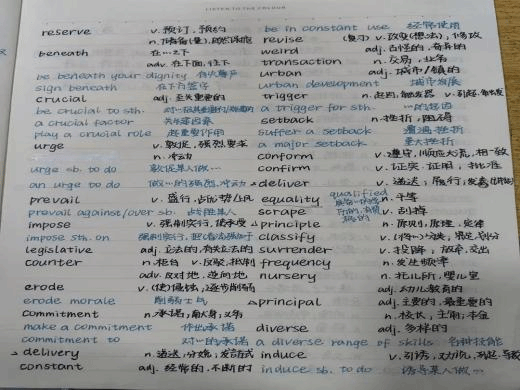 LISTEN TO THE COLOUR
reserve v. 预订, 预约
n. 储备(量), 自然保护区
beneath adv. 在下面, 往下
be beneath your dignity 有失尊严
sign beneath 在下方签字
crucial adj. 至关重要的
be crucial to sth.
a crucial factor 关键因素
play a crucial role 起重要作用
urge v. 敦促, 强烈要求
n. 冲动
urge sb. to do 敦促某人做…
an urge to do 做…的强烈冲动
prevail v. 盛行, 占优势/上风
prevail against/over sb. 占胜某人
impose v. 强制实行, 使承受
impose sth. on
legislative adj. 立法的, 有关立法的
counter n. 柜台 v. 反驳, 抵制
adv. 反对地, 逆向地
erode v. (使)侵蚀, 逐步削弱
erode morale 削弱士气
commitment n. 承诺, 献身, 义务
make a commitment 作出承诺
commitment to 对…的承诺
delivery n. 递送, 分娩, 发言方式
constant adj. 经常的, 不断的
be in constant use 经常使用
revise v. 改变(想法), 修改
weird adj. 古怪的, 奇异的
transaction n. 交易, 业务
urban adj. 城市/镇的
urban development 城市发展
trigger n. 起因, 触发器 v. 引起
a trigger for sth. …的起因
setback n. 挫折, 阻碍
suffer a setback 遭遇挫折
a major setback 重大挫折
conform v. 遵守, 顺应大流, 相一致
confirm v. 证实, 证明, 批准
deliver v. 递送, 履行, 发表
qualified
equality n. 平等
scrape v. 刮掉
principle n. 原则, 原理, 定律
classify v. 分类, 界定, 划分
surrender v. 投降, 放弃, 交出
frequency n. 发生频率
nursery n. 托儿所, 婴儿室
adj. 幼儿教育的
principal adj. 主要的, 最重要的
n. 校长, 主角, 本金
diverse adj. 多样的
a diverse range of skills 各种技能
induce v. 引诱, 引起, 导致
induce sb. to do 诱导某人做…